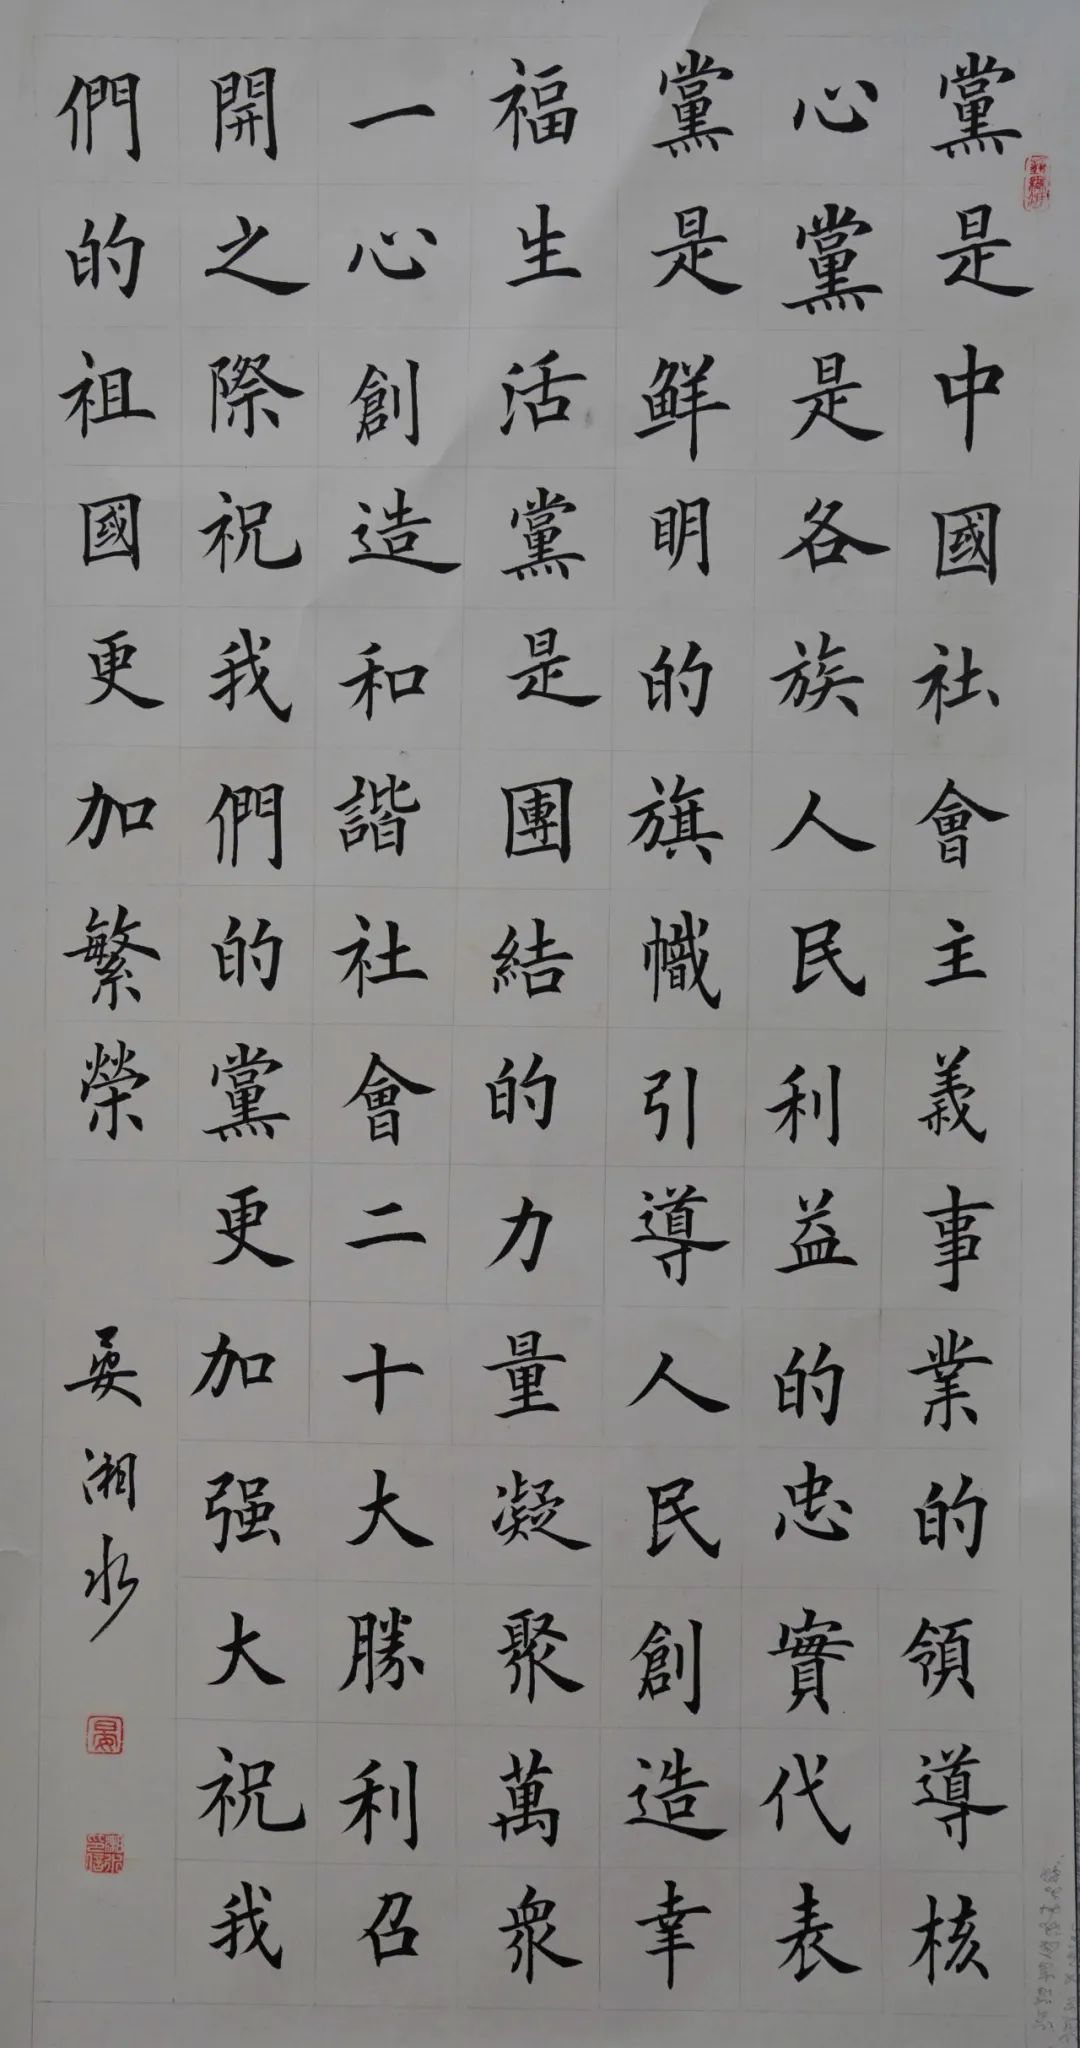 黨是中國社會主義事業的領導核
心黨是各族人民利益的忠實代表
黨是鮮明的旗幟引導人民創造幸
福生活黨是團結的力量凝聚萬衆
一心創造和諧社會二十大勝利召
開之際祝我們的黨更加强大祝我
們的祖國更加繁榮
晏湘水